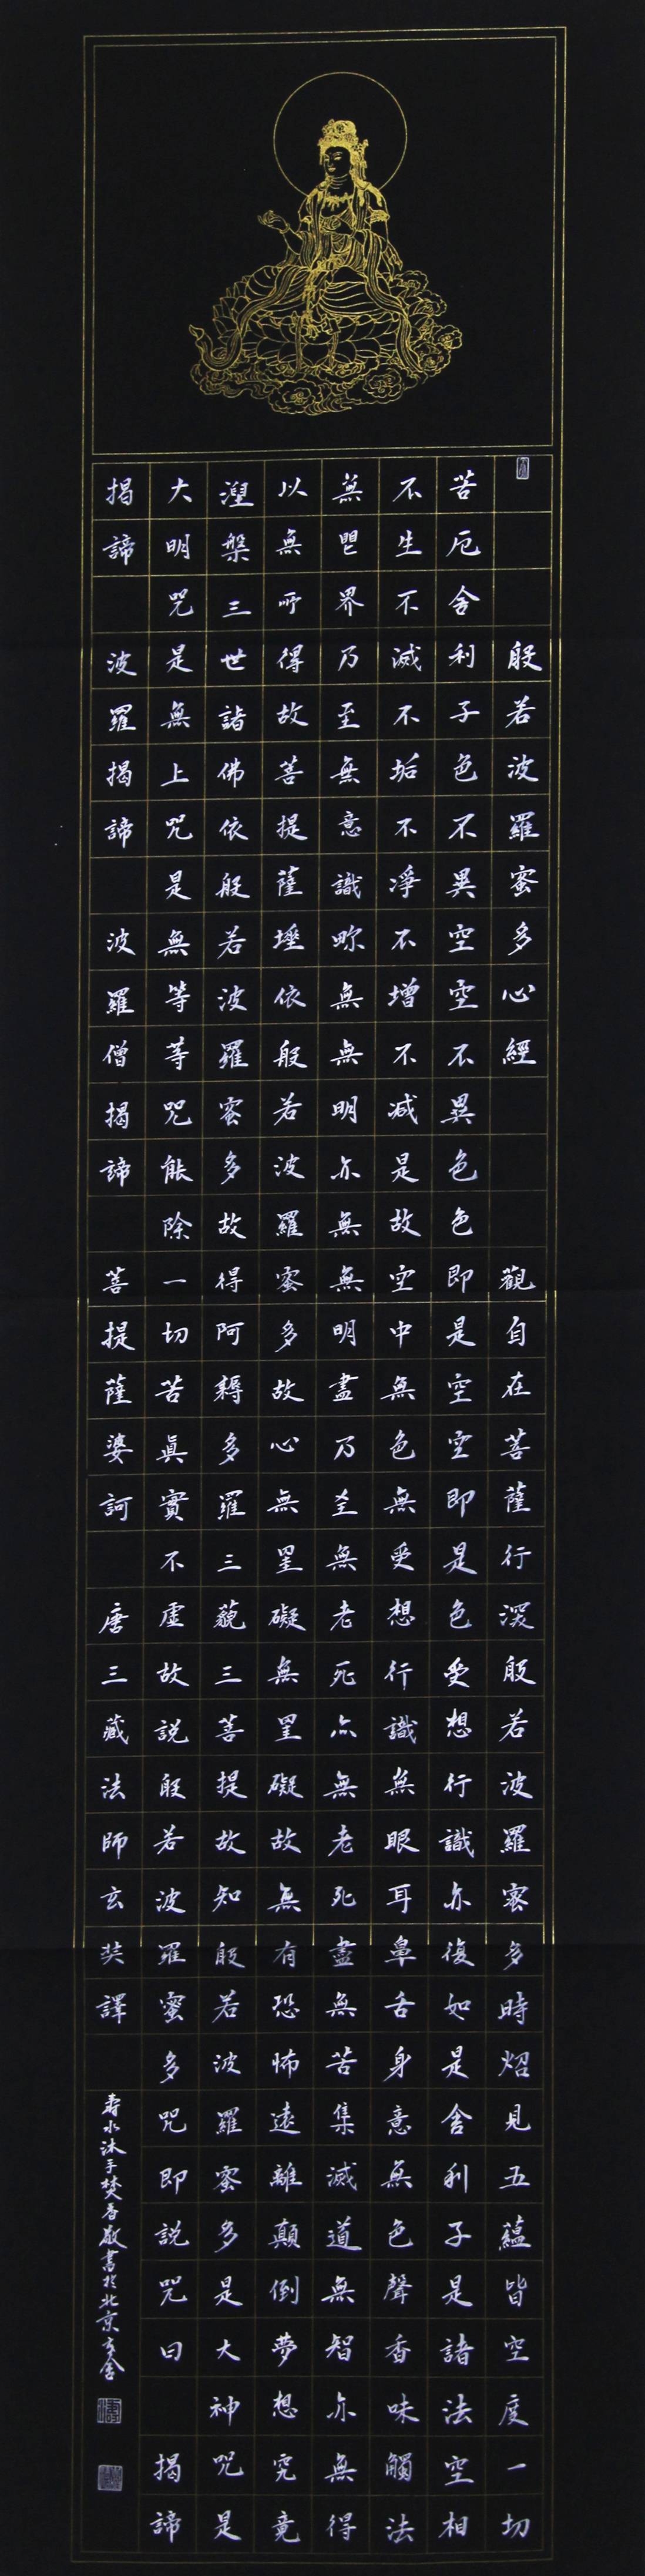 般若波羅蜜多心經 觀自在菩薩行深般若波羅蜜多時炤見五蘊皆空度一切
苦厄舍利子色不異空空不異色色即是空空即是色受想行識亦復如是舍利子是諸法空相
不生不滅不垢不淨不增不減是故空中無色無受想行識無眼耳鼻舌身意無色聲香味觸法
無眼界乃至無意識界無無明亦無無明盡乃至無老死亦無老死盡無苦集滅道無智亦無得
以無所得故菩提薩埵依般若波羅蜜多故心無罣礙無罣礙故無有恐怖遠離顛倒夢想究竟
涅槃三世諸佛依般若波羅蜜多故得阿耨多羅三藐三菩提故知般若波羅蜜多是大神咒是
大明咒是無上咒是無等等咒能除一切苦真實不虛故說般若波羅蜜多咒即說咒曰 揭諦
揭諦 波羅揭諦 波羅僧揭諦 菩提薩婆訶 唐三藏法師玄奘譯
壽水沐手焚香敬書於北京